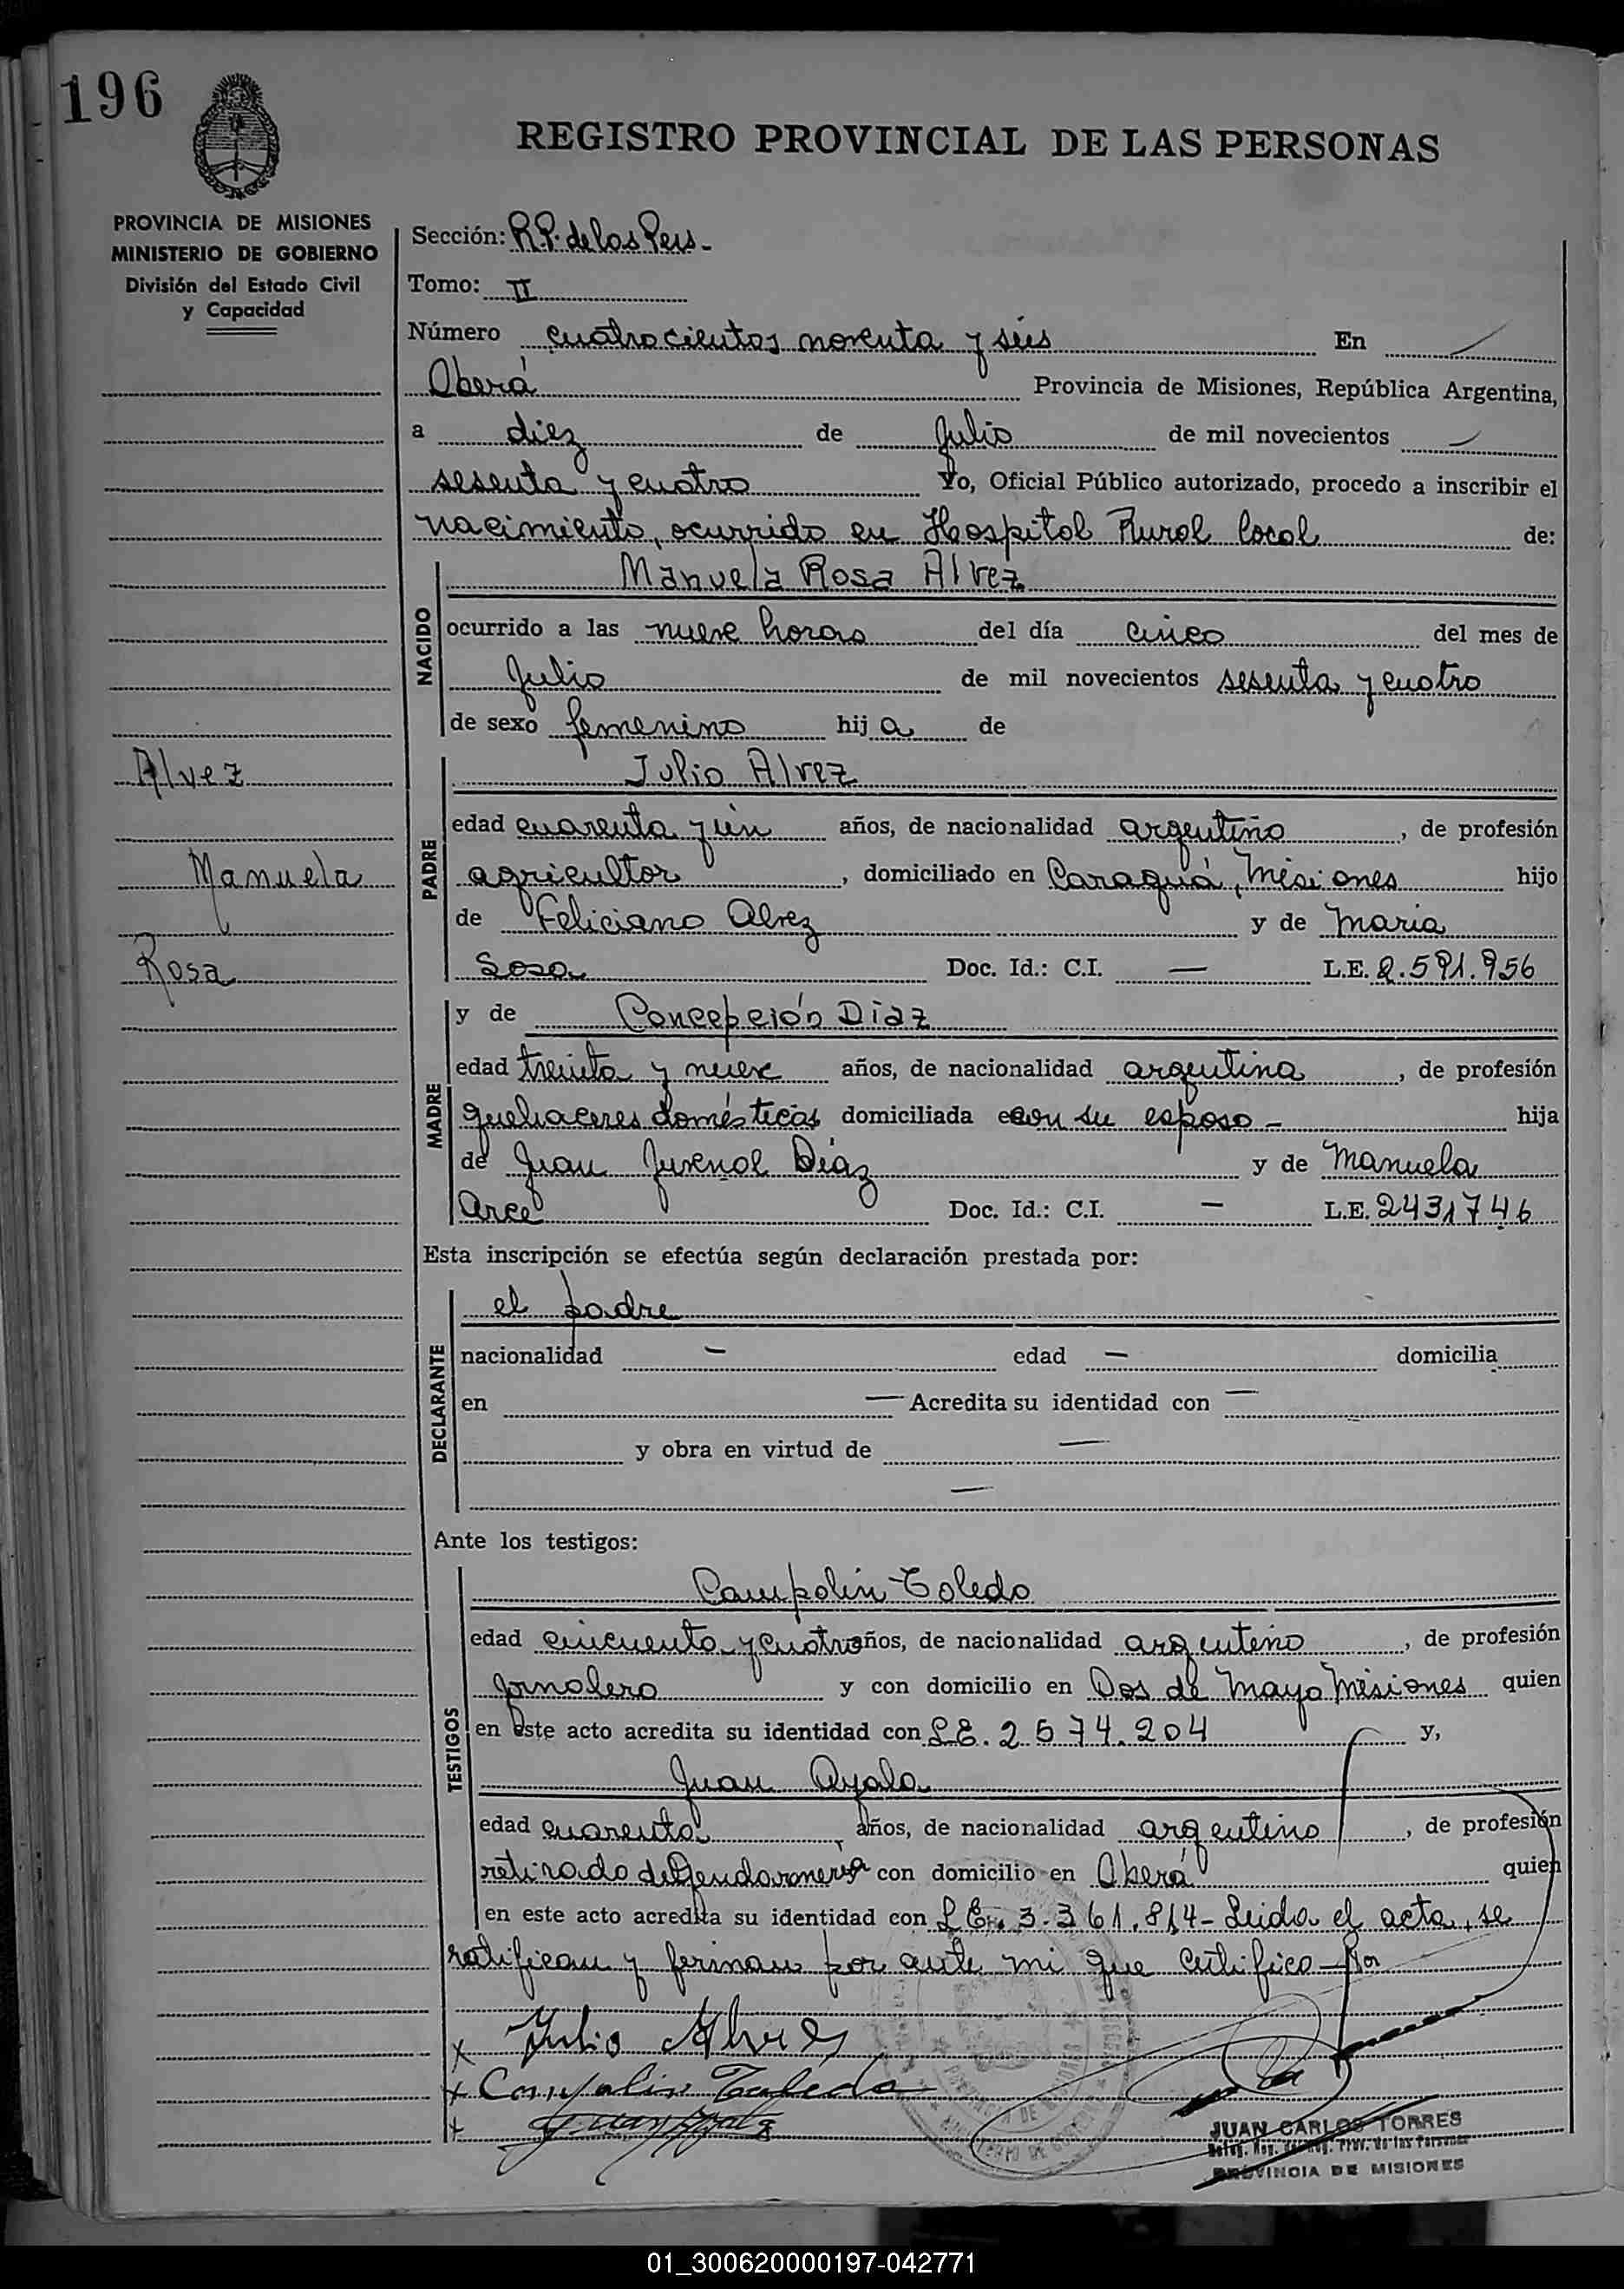 196
REGISTRO PROVINCIAL DE LAS PERSONAS
PROVINCIA DE MISIONES
MINISTERIO DE GOBIERNO
División del Estado Civil
y Capacidad
Sección: R.P. de las Pers.
Tomo: II
Número cuatrocientos noventa y seis En
Oberá Provincia de Misiones, República Argentina,
a diez de Julio de mil novecientos
sesenta y cuatro Yo, Oficial Público autorizado, procedo a inscribir el
nacimiento, ocurrido en Hospital Rural local de:
Manuela Rosa Alvez
NACIDO
ocurrido a las nueve horas del día cinco del mes de
Julio de mil novecientos sesenta y cuatro
de sexo femenino hij a de
Alvez
Manuela
Rosa
Julio Alvez
PADRE
edad cuarenta y un años, de nacionalidad argentino, de profesión
agricultor, domiciliado en Caraguá, Misiones hijo
de Feliciano Alvez y de Maria
Sosa Doc. Id.: C.I. — L.E. 2.591.956
y de Concepción Diaz
MADRE
edad treinta y nueve años, de nacionalidad argentina, de profesión
quehaceres domésticos domiciliada con su esposo - hija
de Juan Juvenal Diaz y de Manuela
Arce Doc. Id.: C.I. — L.E. 2431746
Esta inscripción se efectúa según declaración prestada por:
el padre
DECLARANTE
nacionalidad — edad — domicilia
en — Acredita su identidad con —
y obra en virtud de —
—
Ante los testigos:
Campolin Toledo
TESTIGOS
edad cincuenta y cuatro años, de nacionalidad argentino, de profesión
Jornalero y con domicilio en Dos de Mayo Misiones quien
en este acto acredita su identidad con L.E. 2.574.204 y,
Juan Ayala
edad cuarenta años, de nacionalidad argentino, de profesión
retirado de Gendarmeria con domicilio en Oberá quien
en este acto acredita su identidad con L.E. 3.361.814 - Leida el acta, se
ratifican y firman por ante mi que certifico
x Julio Alves
x Campolin Toledo
x Juan Ayala
JUAN CARLOS TORRES
PROVINCIA DE MISIONES
01_300620000197-042771